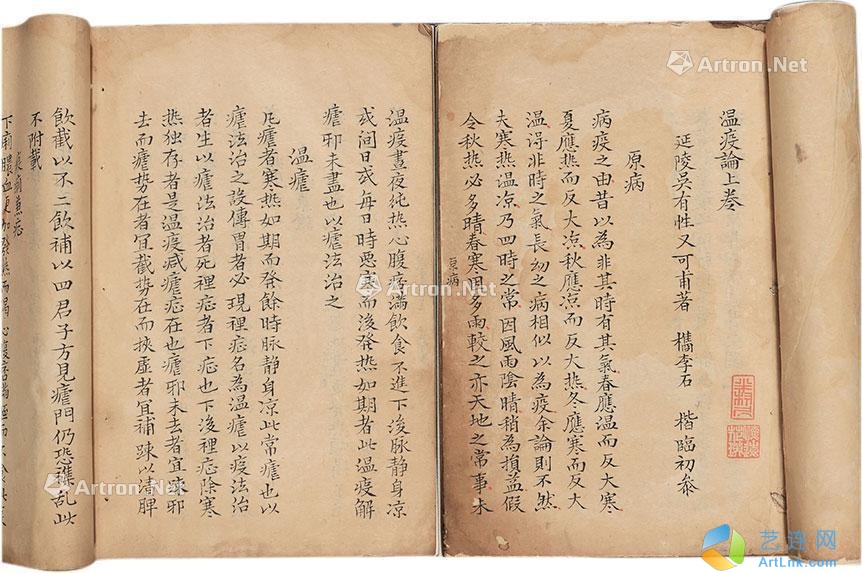 温疫論上卷
延陵吳有性又可甫著 檇李石 楷臨初叅
原病
病疫之由昔以為非其時有其氣春應温而反大寒
夏應热而反大凉秋應凉而反大热冬應寒而反大
温得非时之氣長幼之病相似以為疫余論則不然
夫寒热温凉乃四時之常因風雨陰晴稍為損益假
令秋热必多晴春寒因多雨較之亦天地之常事未
原病
温疫晝夜纯热心腹痞滿飲食不進下後脉静身凉
或间日或每日時惡寒而後發热如期者此温疫解
瘧邪未盡也以瘧法治之
温瘧
凡瘧者寒热如期而發餘時脉静身凉此常瘧也以
瘧法治之設傳胃者必現裡症名為温瘧以疫法治
者生以瘧法治者死裡症者下症也下後裡症除寒
热独存者是温疫减瘧症在也瘧邪未去者宜疎邪
去而瘧势在者宜截势在而挾虚者宜補疎以清脾
飲截以不二飲補以四君子方見瘧門仍恐雜乱此
不附載
疫痢兼症
下痢膿血更加發热而渴心腹痞滿
Artron.Net
Artron.Net
Artron.Net
Artron.Net
Artron.Net
Artron.Net
艺连网
ArtLink.com